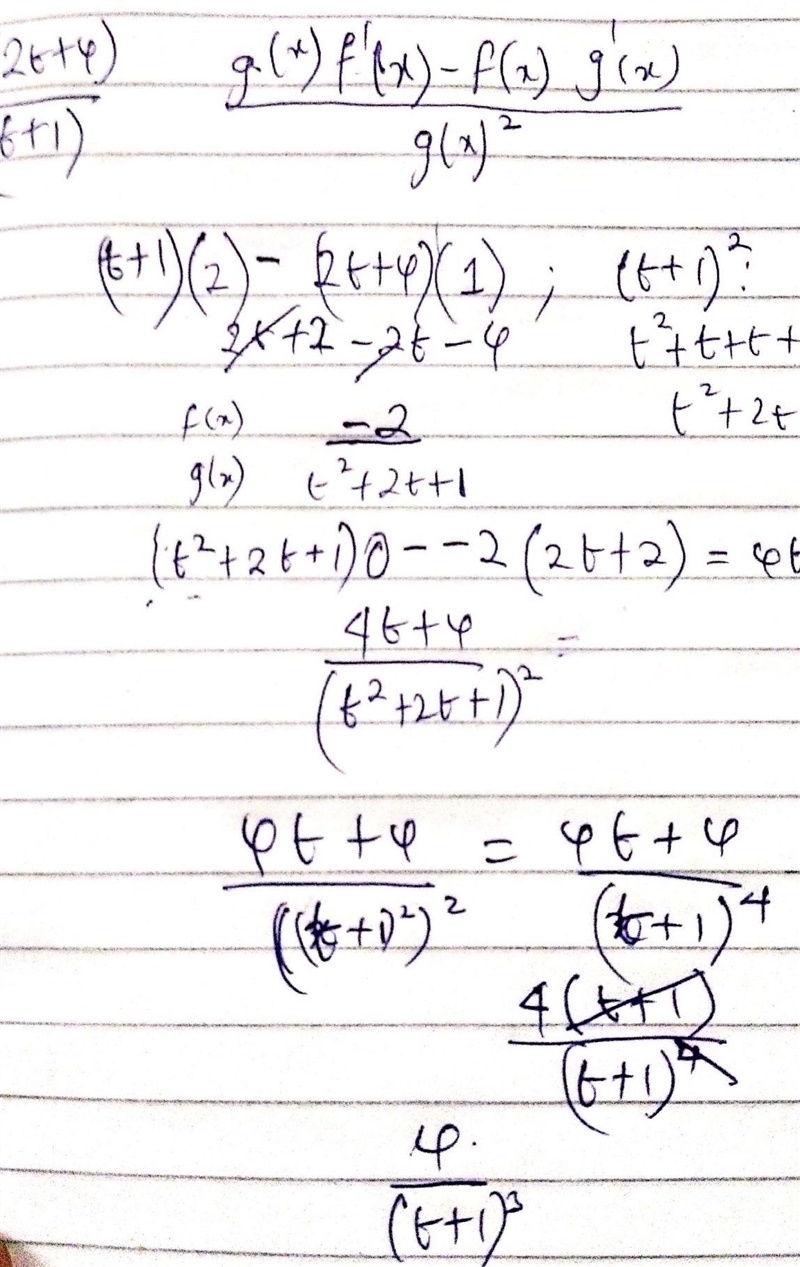 2t+4) / t+1)    g(x) f'(x) - f(x) g'(x) / g(x)²
(t+1)(2) - (2t+4)(1) ; (t+1)² :
2t+2 - 2t - 4    t²+t+t+
f(x)    -2    t²+2t
g(x)    t²+2t+1
(t²+2t+1)0 - -2(2t+2) = 4t
4t+4 / (t²+2t+1)² =
4t+4 / ((t+1)²)² = 4t+4 / (t+1)⁴
4(t+1) / (t+1)⁴
4 / (t+1)³